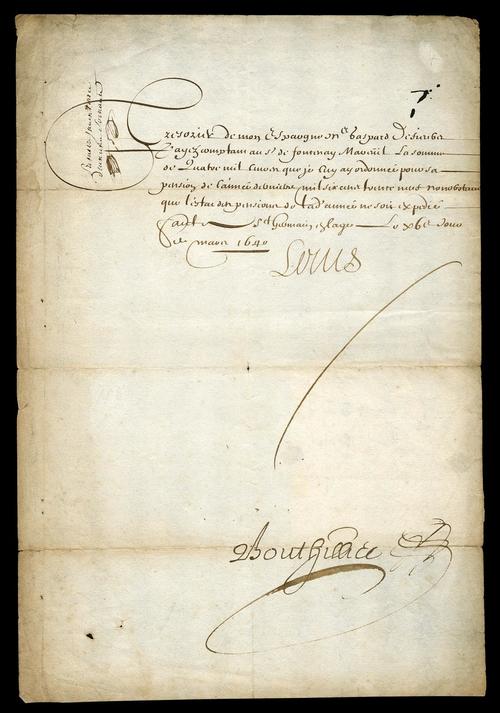 Tresorier de mon Espargne Me Gaspard De
Payez comptant au Sr de fontenay Mareuil La somme
de Quatre mil livres que je luy ay ordonnée pour sa
pension de l'année derniere mil six cens trente neuf nonobstant
que l'estat des pensions de lad. année ne soit expedié
faict a St Germain en laye Le xbie Jour
de mars 1640
Louis
Bouthillier